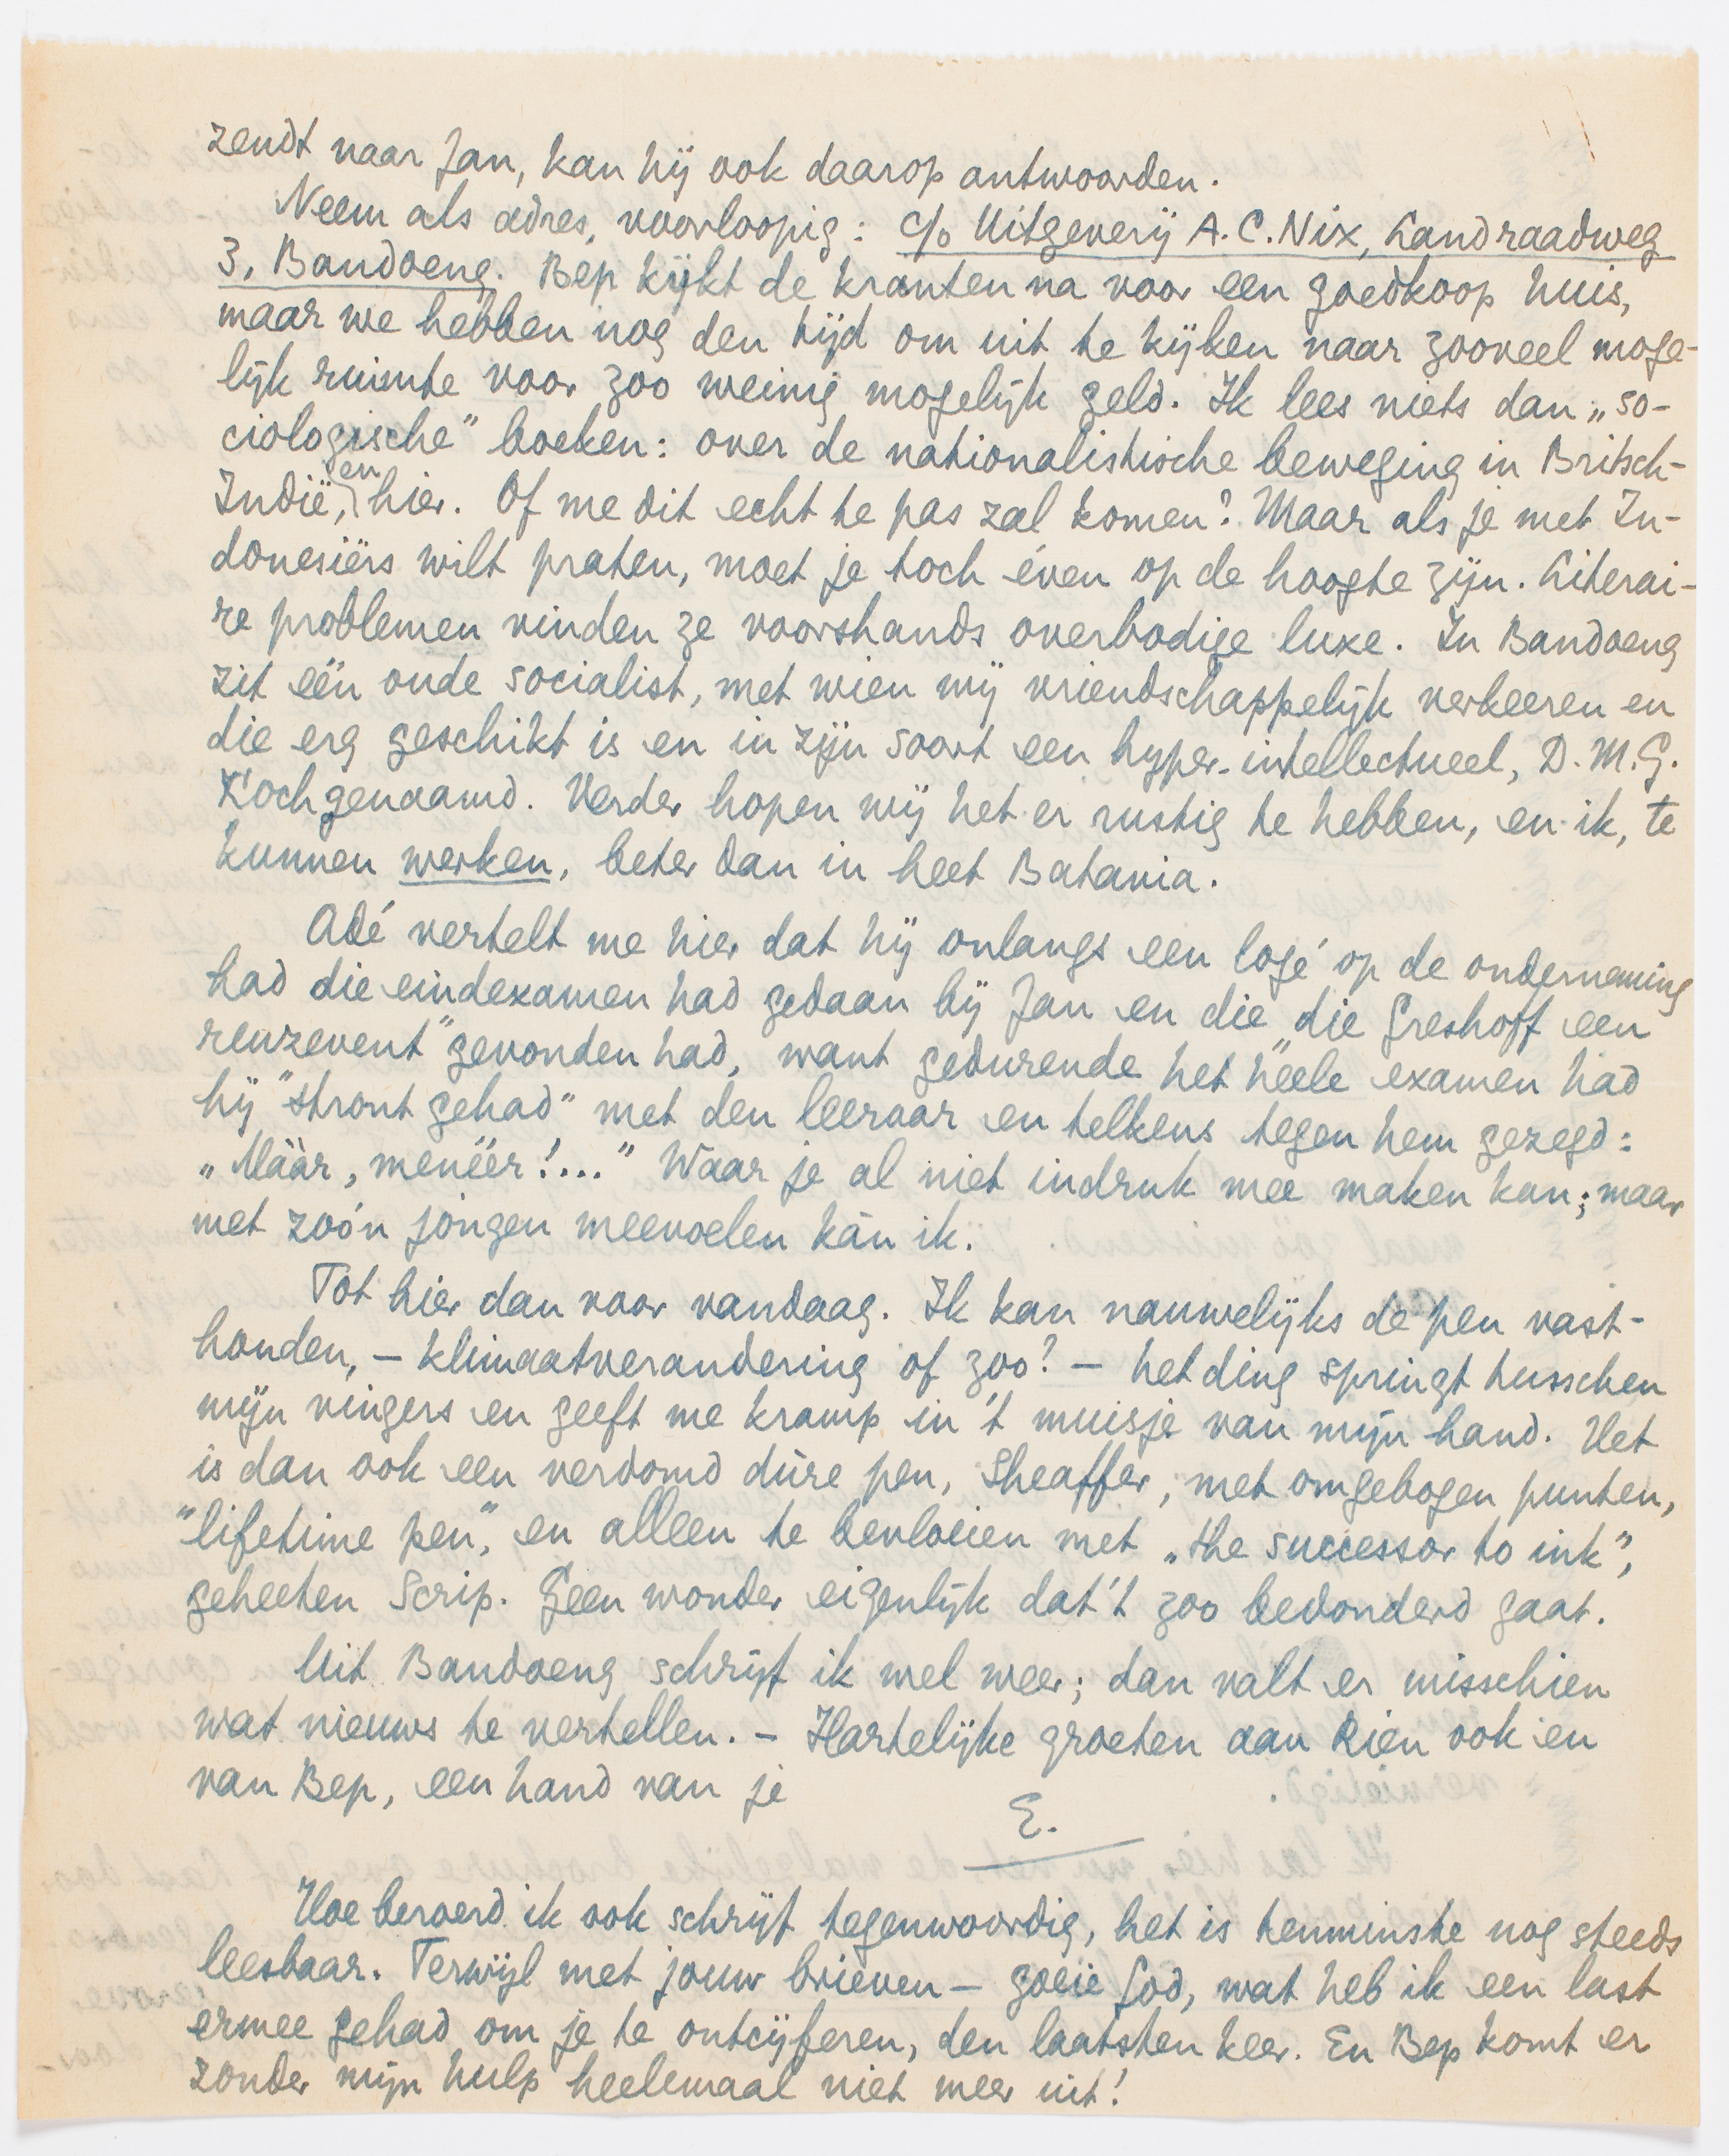 zendt naar Jan, kan hij ook daarop antwoorden.
Neem als adres, voorloopig: c/o Uitgeverij A.C. Nix, Landraadweg
3, Bandoeng. Bep kijkt de kranten na voor een goedkoop huis,
maar we hebben nog den tijd om uit te kijken naar zooveel moge-
lijk ruimte voor zoo weinig mogelijk geld. Ik lees niets dan „so-
ciologische" boeken: over de nationalistische beweging in Britsch-
Indië, en hier. Of me dit echt te pas zal komen? Maar als je met In-
donesiërs wilt praten, moet je toch éven op de hoogte zijn. Literai-
re problemen vinden ze voorshands overbodige luxe. In Bandoeng
zit één oude socialist, met wien wij vriendschappelijk verkeeren en
die erg geschikt is en in zijn soort een hyper-intellectueel, D.M.G.
Koch genaamd. Verder hopen wij het er rustig te hebben, en ik, te
kunnen werken, beter dan in heet Batavia.
Adé vertelt me hier dat hij onlangs een logé op de onderneming
had die eindexamen had gedaan bij Jan en die „die Greshoff een
reuzevent" gevonden had, want gedurende het héele examen had
hij "stront gehad" met den leeraar en telkens tegen hem gezegd:
„Máár, menéér!..." Waar je al niet indruk mee maken kan; maar
met zoo'n jongen meevoelen kàn ik.
Tot hier dan voor vandaag. Ik kan nauwelijks de pen vast-
houden, – klimaatverandering of zoo? – het ding springt tusschen
mijn vingers en geeft me kramp in 't muisje van mijn hand. Het
is dan ook een verdomd dúre pen, Sheaffer, met omgebogen punten,
"lifetime pen", en alleen te bevloeien met „the successor to ink",
geheeten Scrip. Geen wonder eigenlijk dat 't zoo bedonderd gaat.
Uit Bandoeng schrijf ik wel weer; dan valt er misschien
wat nieuws te vertellen. – Hartelijke groeten aan Rien ook en
van Bep, een hand van je
E.
Hoe beroerd ik ook schrijf tegenwoordig, het is tenminste nog steeds
leesbaar. Terwijl met jouw brieven – goeie God, wat heb ik een last
ermee gehad om je te ontcijferen, den laatsten keer. En Bep komt er
zonder mijn hulp heelemaal niet meer uit!